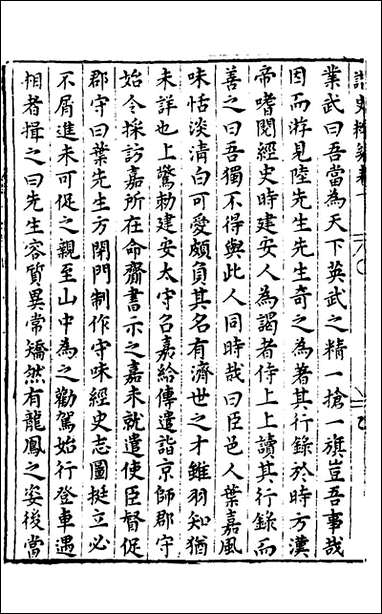 諧史
業武曰吾當為天下英武之精一搶一旗豈吾事哉
因而游見陸先生先生奇之為著其行錄於時方漢
帝嗜閱經史時建安人為謁者侍上上讀其行錄而
善之曰吾獨不得與此人同時哉曰臣邑人葉嘉風
味恬淡清白可愛頗負其名有濟世之才雖羽知猶
未詳也上驚勅建安太守召嘉給傳遣詣京師郡守
始令採訪嘉所在命齎書示之嘉未就遣使臣督促
郡守曰葉先生方閉門制作守味經史志圖挺立必
不屑進未可促之親至山中為之勸駕始行登車遇
相者揖之曰先生容質異常矯然有龍鳳之姿後當